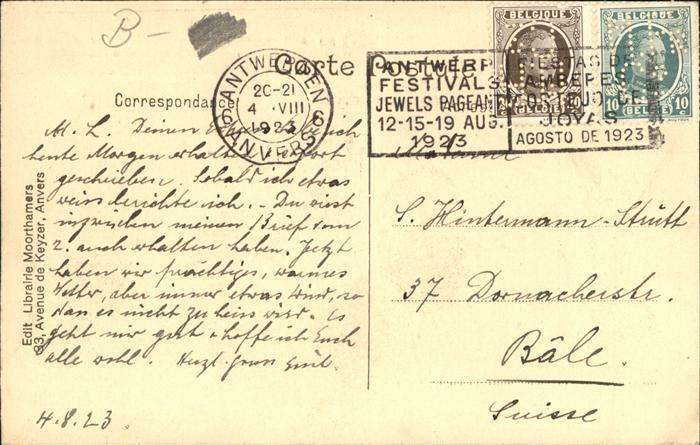 B-
BELGIQUE
BELGIQUE
Carte Postale
ANTWERPEN 6
20-21
4 VIII
1923
ANVERS
ANTWERP
FESTIVALS
JEWELS PAGEANT
12-15-19 AUG.
1923
FIESTAS DE
AMBERES
CORTEJO DE
JOYAS
AGOSTO DE 1923
BELGIË
10 BELGIË 10
Correspondance
M. L. Deinen habe ich
heute Morgen erhalten
geschrieben. Sobald ich etwas
weiss berichte ich. - Du wirst
inzwischen meinen Brief vom
2. auch erhalten haben. Jetzt
haben wir prächtiges, warmes
Wetter, aber immer etwas Wind, so
dass es nicht zu heiss wird. Es
geht mir gut & hoffe ich Euch
alle wohl. Herzl. Emil.
4.8.23
Madame
S. Hintermann-Stutt
37 Dornacherstr.
Bâle.
Suisse
Edit Librairie Moorthamers
83, Avenue de Keyzer, Anvers